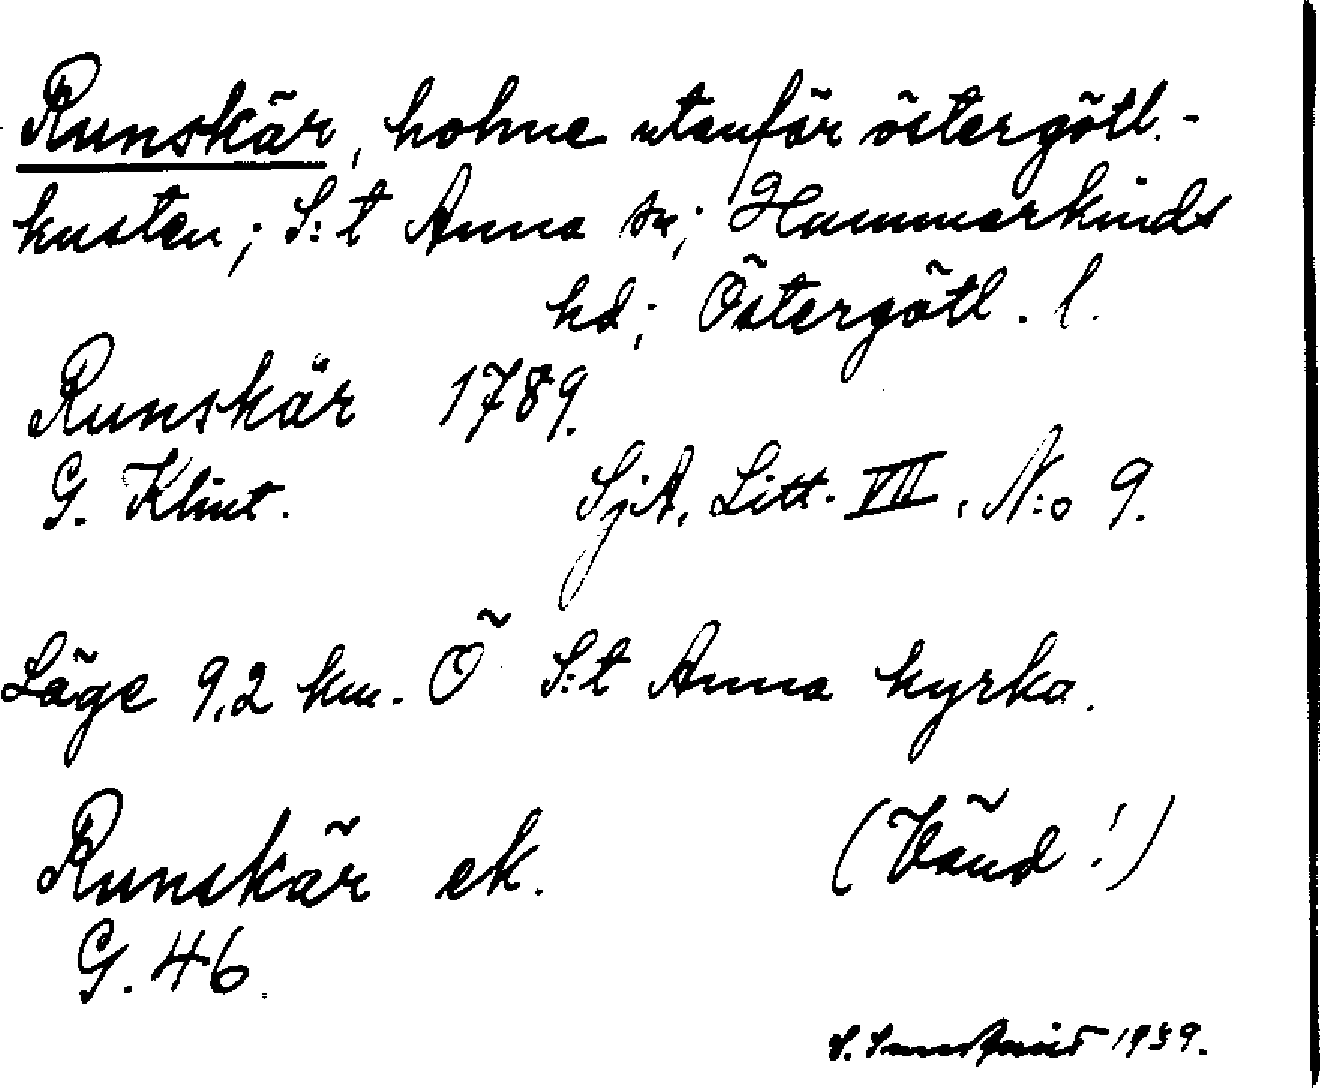 Runskär, holme utanför östergötl.-
kusten; S:t Anna sn; Hammarkinds
hd; Östergötl. l.
Runskär 1789.
G. Klint. SjA. Litt. VII. N:o 9.
Läge 9,2 km. Ö S:t Anna kyrka.
Runskär ek. (Vänd!)
G. 46.
1939.